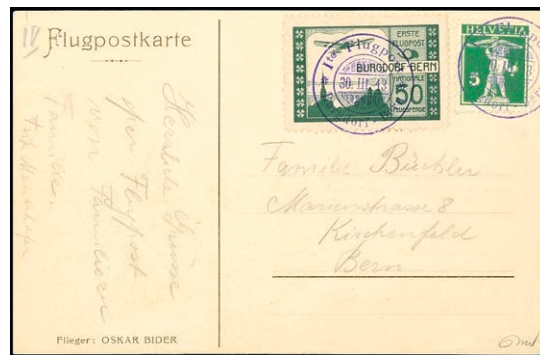 IV
Flugpostkarte
Herzliche Grüsse
der Flugpost
von Familien
Familie.
ERSTE
FLUGPOST
BURGDORF-BERN
NATIONALE
50
FLUGSPENDE
Ite Flugpost
30. III. 13
HELVETIA
5
Familie Büchler
Marienstrasse 8
Kirchenfeld
Bern
Flieger: OSKAR BIDER